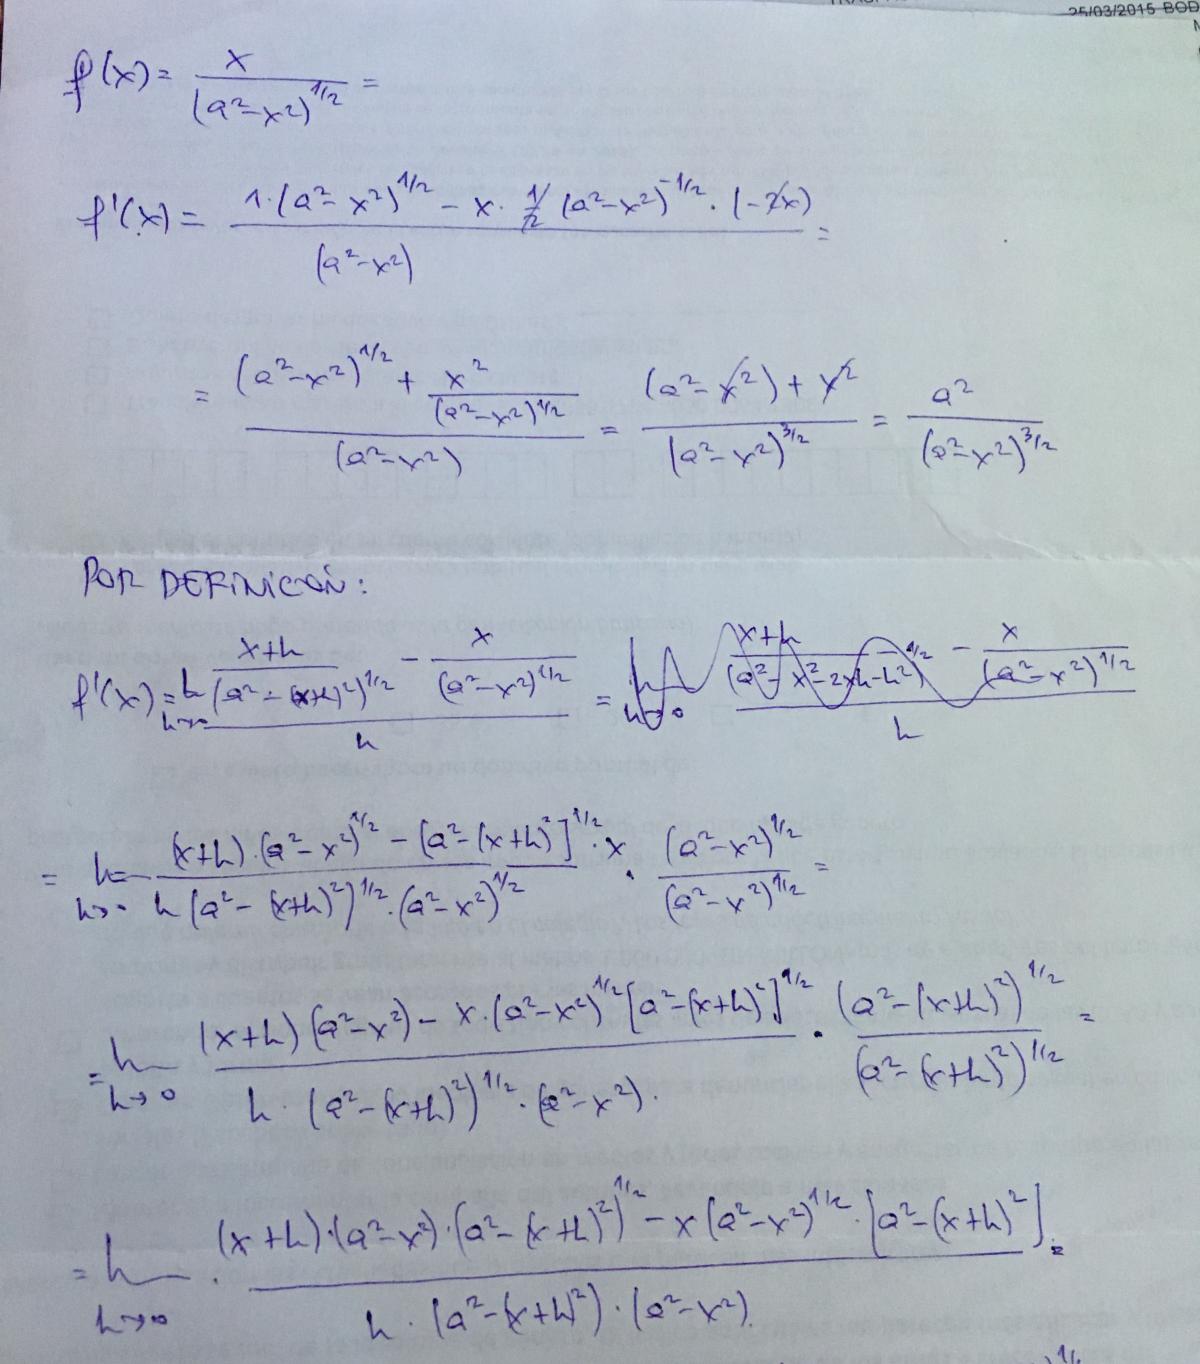 25/03/2015 BOD
f(x) = x / (a²-x²)^1/2 =
f'(x) = 1·(a²-x²)^1/2 - x · 1/2 (a²-x²)^-1/2 · (-2x) / (a²-x²) =
= (a²-x²)^1/2 + x² / (a²-x²)^1/2 / (a²-x²) = (a²-x²) + x² / (a²-x²)^3/2 = a² / (a²-x²)^3/2
POR DEFINICIÓN:
f'(x) = lim h→0 (x+h / (a²-(x+h)²)^1/2 - x / (a²-x²)^1/2) / h = lim h→0 (x+h / (a²-x²-2xh-h²)^1/2 - x / (a²-x²)^1/2) / h
= lim h→0 (x+h)·(a²-x²)^1/2 - [a²-(x+h)²]^1/2 · x / h(a²-(x+h)²)^1/2·(a²-x²)^1/2 · (a²-x²)^1/2 / (a²-x²)^1/2 =
= lim h→0 (x+h)(a²-x²) - x·(a²-x²)^1/2 [a²-(x+h)²]^1/2 / h·(a²-(x+h)²)^1/2·(a²-x²). · (a²-(x+h)²)^1/2 / (a²-(x+h)²)^1/2 =
= lim h→0 · (x+h)·(a²-x²)·(a²-(x+h)²)^1/2 - x(a²-x²)^1/2·[a²-(x+h)²] / h·(a²-(x+h)²)·(a²-x²). =